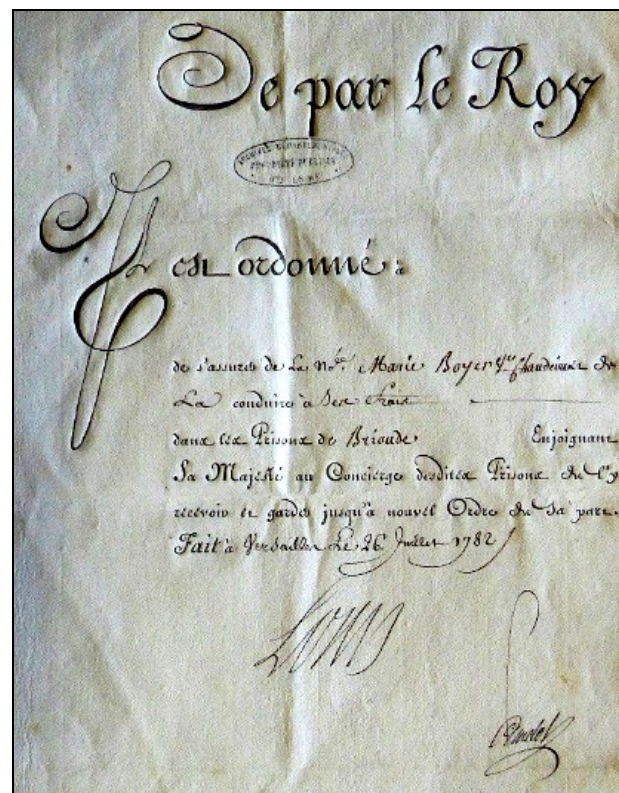 De par le Roy
ARCHIVES DÉPARTEMENTALES
Il est ordonné :
de s'assurer de La née. Marie Boyer Vve de
La conduire à Ses frais
dans les Prisons de Brioude Enjoignant
Sa Majesté au Concierge desdites Prisons de l'y
recevoir et garder jusqu'à nouvel Ordre de Sa part.
Fait à Versailles Le 26 Juillet 1782
Louis